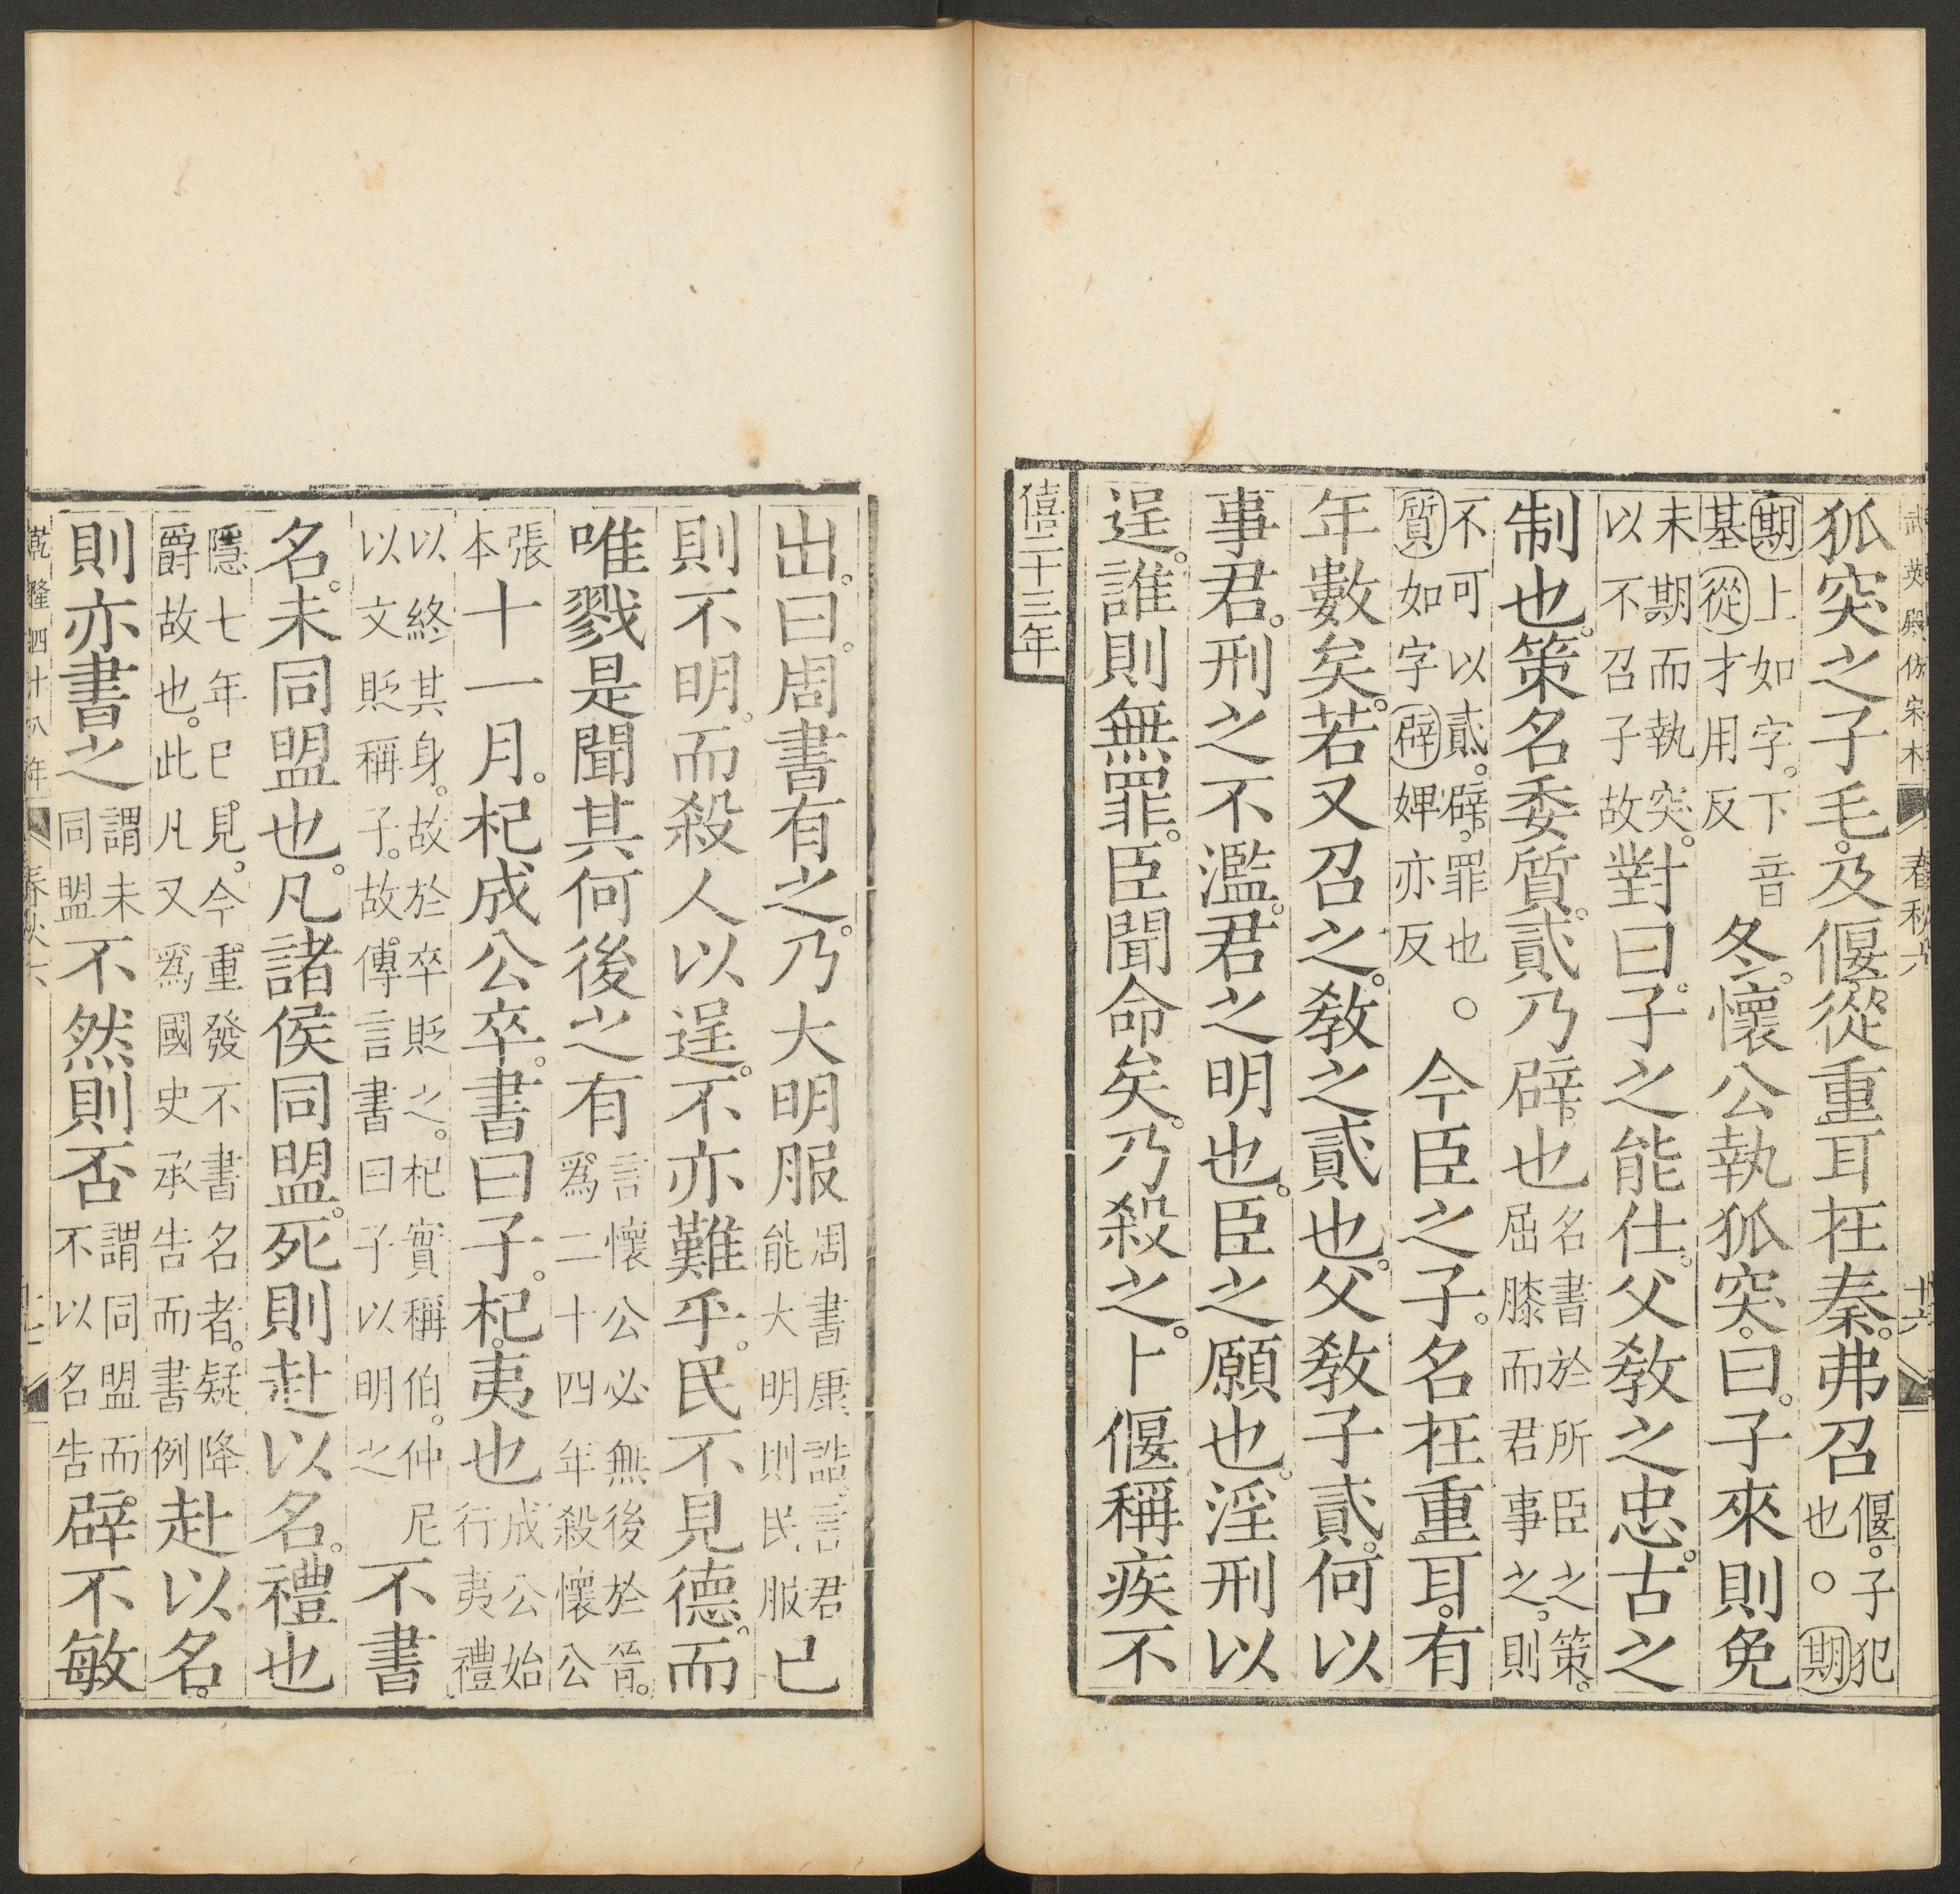 武英殿仿宋本 春秋六 十六
狐突之子毛及偃。從重耳在秦。弗召偃。子犯也。○期
期上如字。下音基從才用反冬。懷公執狐突。曰。子來則免
未期而執突。以不召子故對曰。子之能仕。父教之忠。古之
制也。策名委質。貳乃辟也名書於所臣之策。屈膝而君事之。則
不可以貳。辟。罪也。○質如字辟婢亦反今臣之子。名在重耳。有
年數矣。若又召之。教之貳也。父教子貳。何以
事君。刑之不濫。君之明也。臣之願也。淫刑以
逞。誰則無罪。臣聞命矣。乃殺之。卜偃稱疾不
僖二十三年
出。曰。周書有之。乃大明服周書康誥。言君能大明則民服已
則不明。而殺人以逞。不亦難乎。民不見德。而
唯戮是聞其何後之有言懷公必無後於晉。爲二十四年殺懷公
張本十一月。杞成公卒。書曰子。杞。夷也成公始行夷禮
以終其身。故於卒貶之。杞實稱伯。仲尼以文貶稱子。故傳言書曰子以明之不書
名。未同盟也。凡諸侯同盟。死則赴以名。禮也
隱七年已見。今重發不書名者。疑降爵故也。此凡又爲國史承告而書例赴以名。
則亦書之謂未同盟不然則否謂同盟而不以名告辟不敏
乾隆四十八年 春秋六